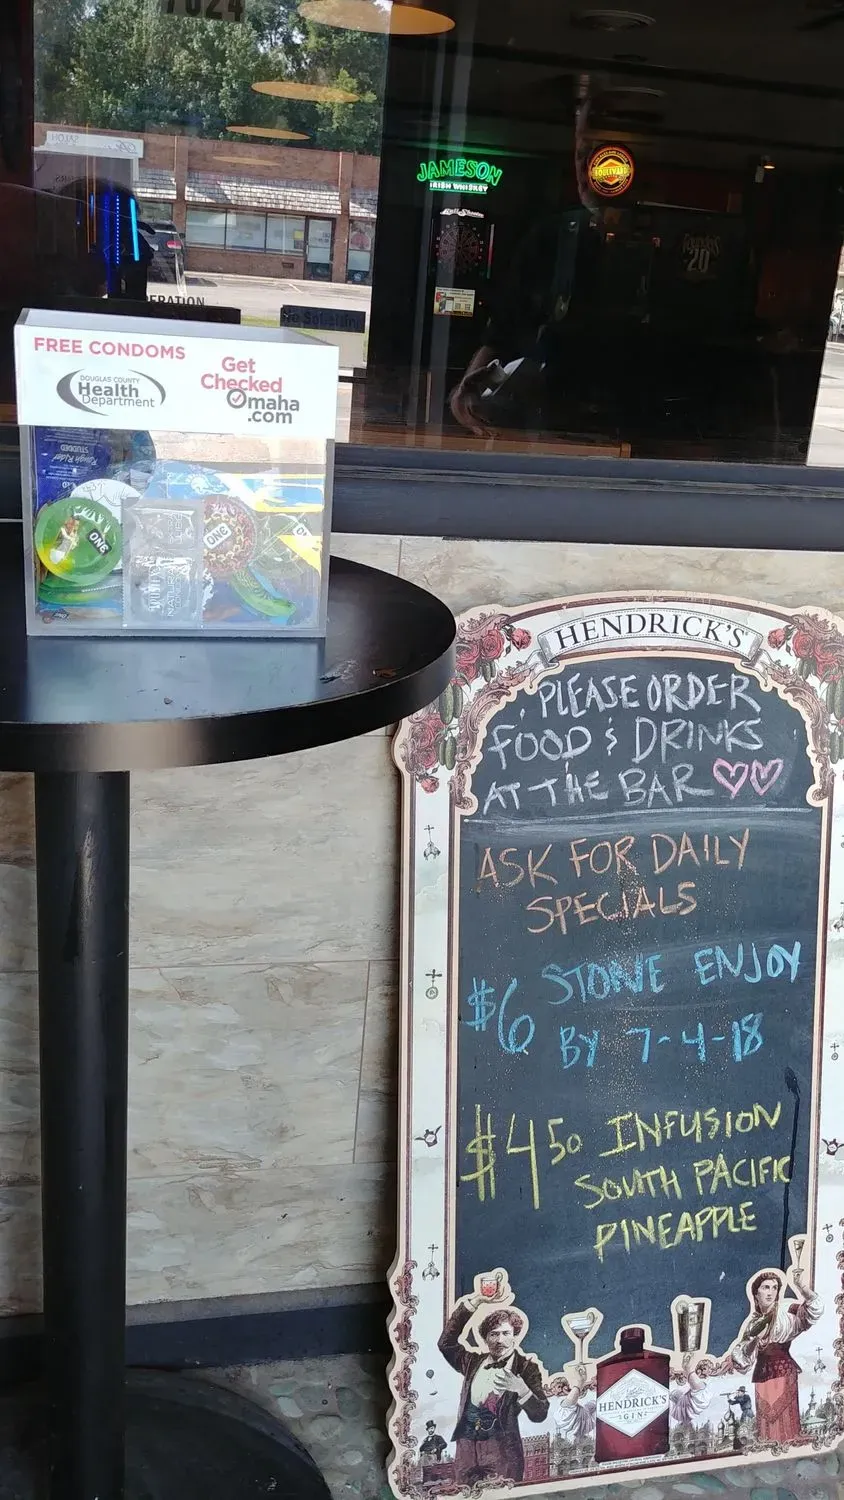 7024
JAMESON
IRISH WHISKEY
BOULEVARD
20
ERATION
No Soliciting
FREE CONDOMS
DOUGLAS COUNTY
Health
Department
Get
Checked
Omaha
.com
Rough Rider
STUDDED
ONE
ONE
HENDRICK'S
PLEASE ORDER
FOOD & DRINKS
AT THE BAR
ASK FOR DAILY
SPECIALS
$6 STONE ENJOY
BY 7-4-18
$4 50 INFUSION
SOUTH PACIFIC
PINEAPPLE
HENDRICK'S
GIN